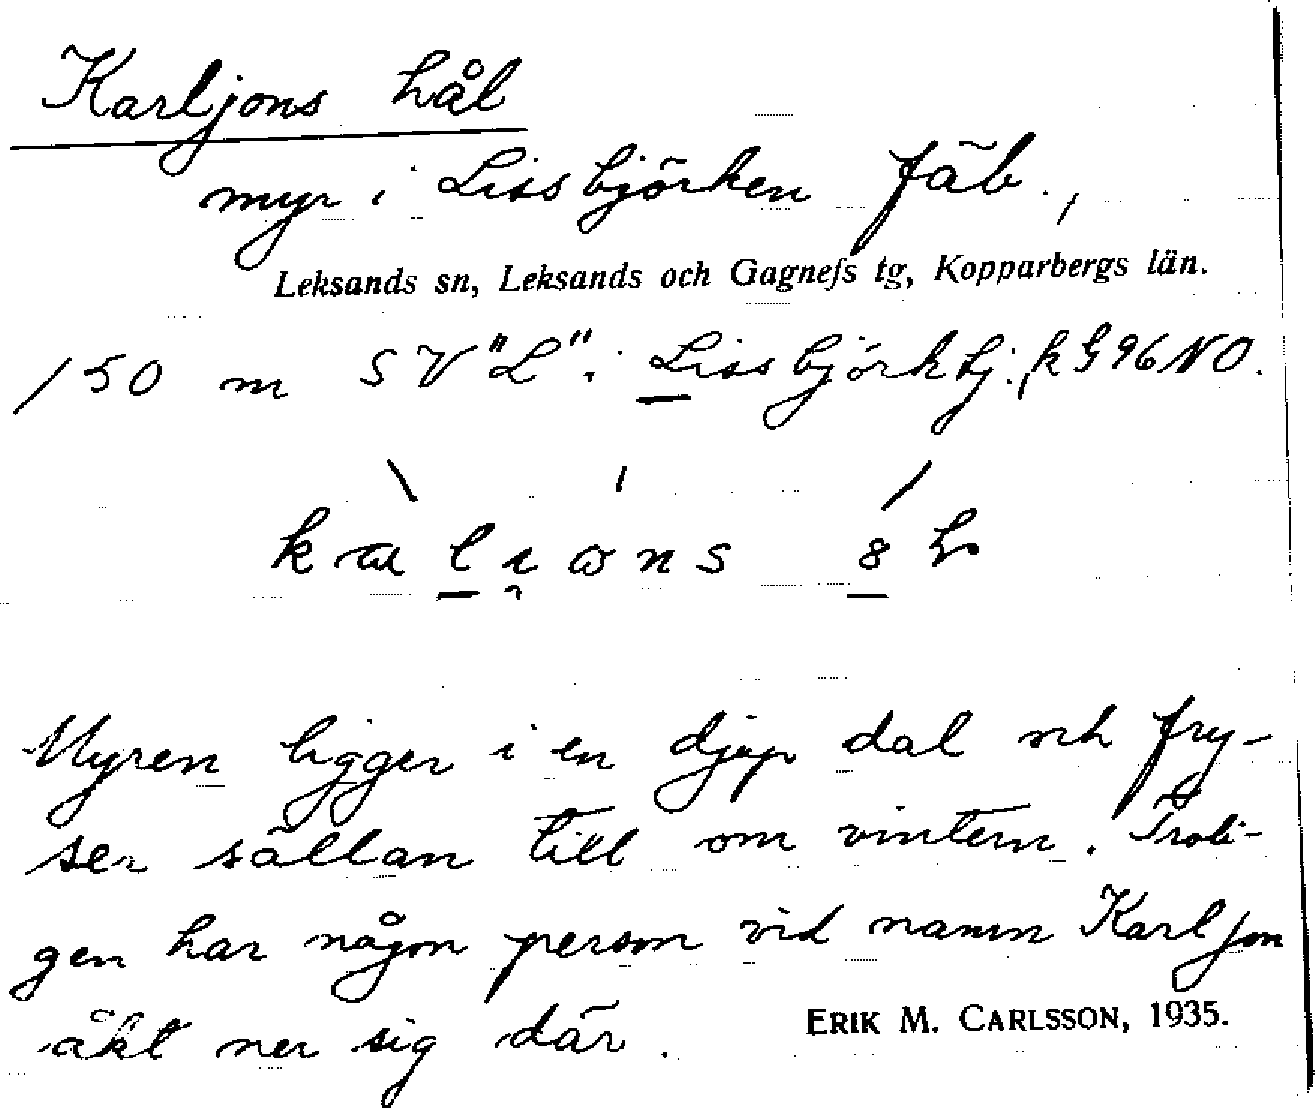 Karljons hål
myr i Lissbjörken fäb.,
Leksands sn, Leksands och Gagnefs tg, Kopparbergs län.
150 m SV "L" i Lissbjörkbj., k G 96 NO.
Myren ligger i en djup dal och fry-
ser sällan till om vintern. Troli-
gen har någon person vid namn Karl Jon
åkt ner sig där.
ERIK M. CARLSSON, 1935.